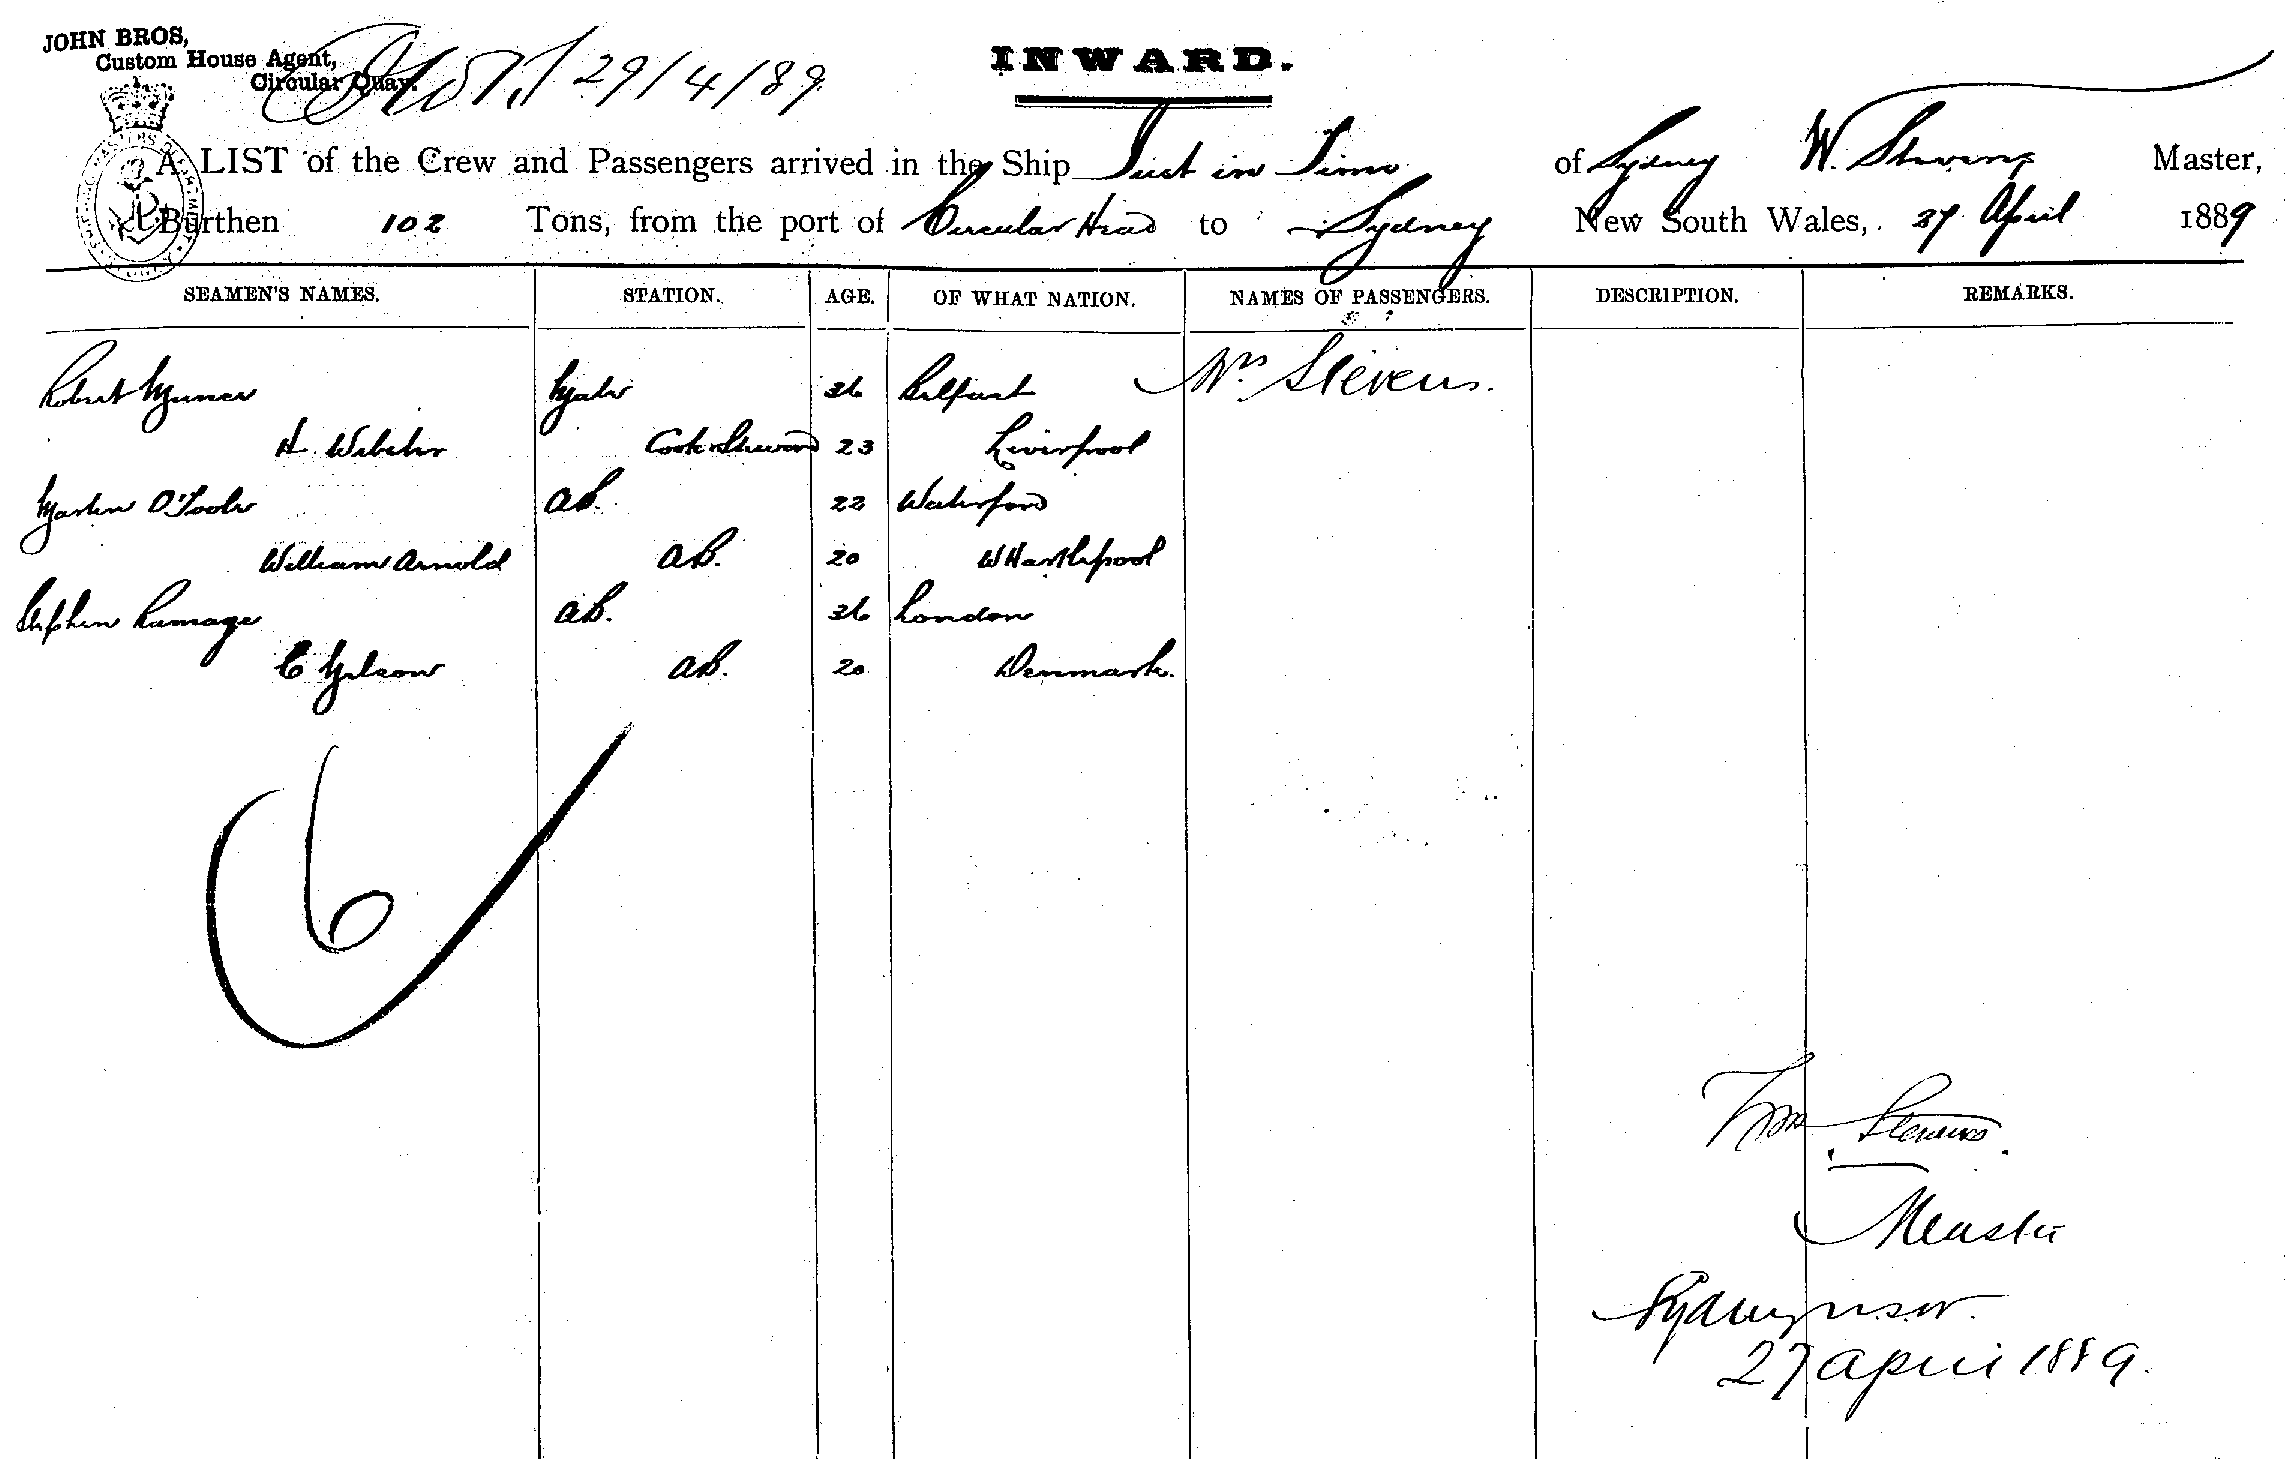 JOHN BROS,
Custom House Agent,
Circular Quay.
29/4/89
INWARD.
A LIST of the Crew and Passengers arrived in the Ship Just in Time of Sydney W. Stevens Master,
Burthen 102 Tons, from the port of Circular Head to Sydney New South Wales, 27 April 1889
SEAMEN'S NAMES. STATION. AGE. OF WHAT NATION. NAMES OF PASSENGERS. DESCRIPTION. REMARKS.
Robert Mate 36 Belfast Mrs Stevens.
H. Webster Cook & Steward 23 Liverpool
Martin O'Toole AB. 22 Waterford
William Arnold AB. 20 W Hartlepool
Stephen Ramage AB. 36 London
C Nelson AB. 20 Denmark.
6
Wm Stevens
Master
Sydney N.S.W.
27 April 1889.